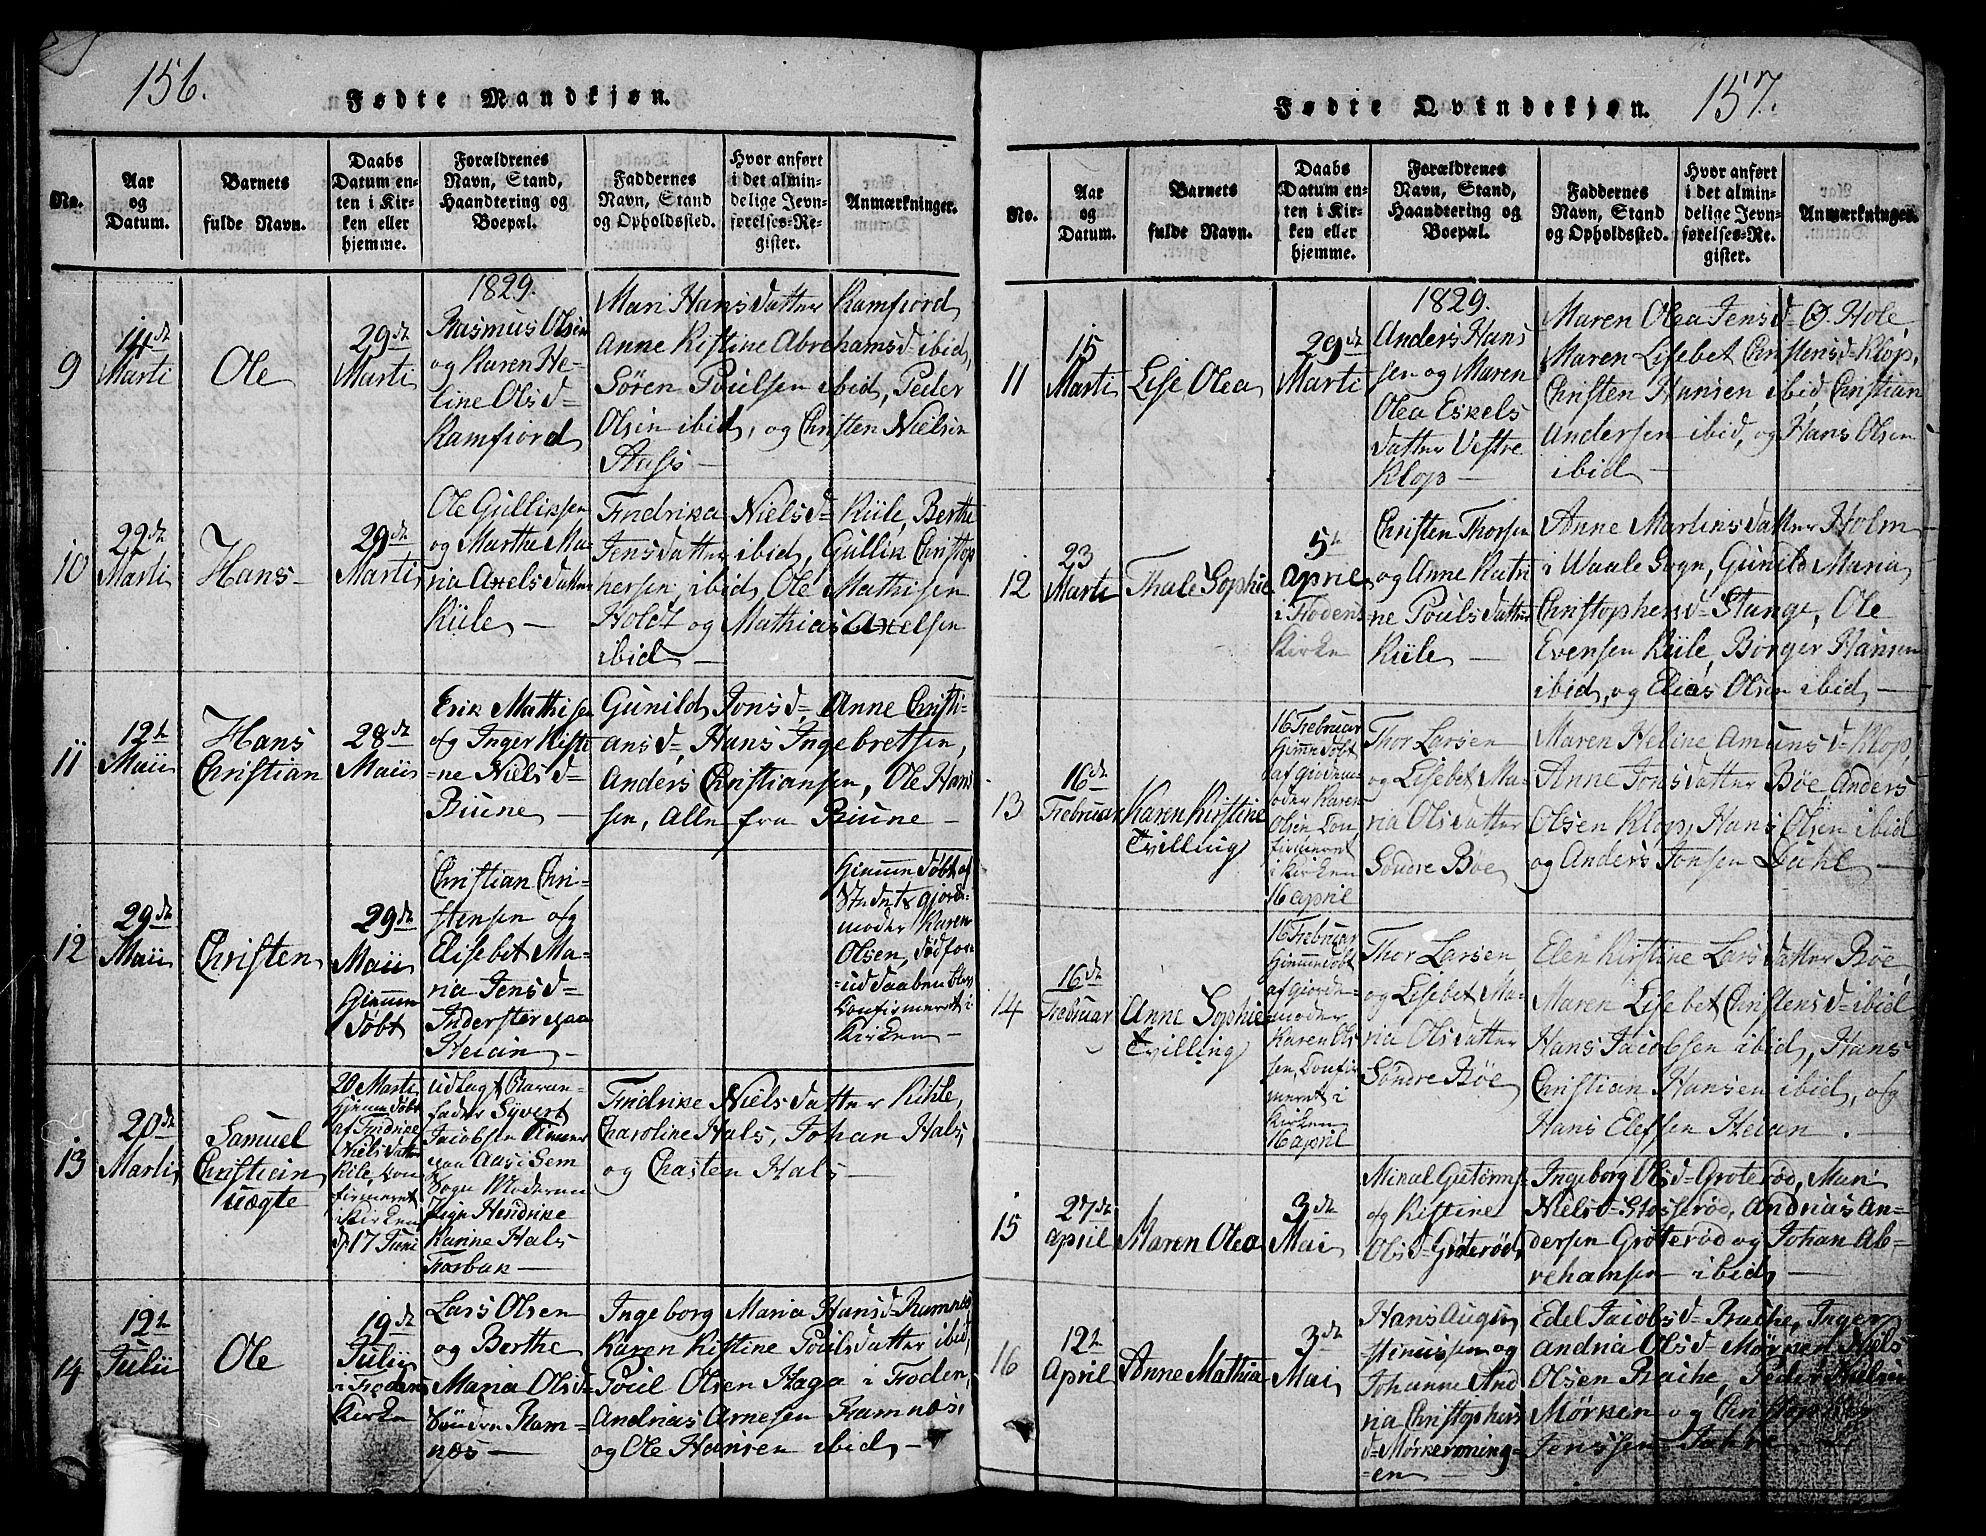 156.
Fødte Mandkjøn.
No.
Aar
og
Datum.
Barnets
fulde Navn.
Daabs
Datum en-
ten i Kir-
ken eller
hjemme.
Forældrenes
Navn, Stand,
Haandtering og
Boepæl.
Faddernes
Navn, Stand
og Opholdssted.
Hvor anført
i det almin-
delige Jevn-
førelses-Re-
gister.
Anmærkninger.
9
14de
Marti
Ole
29de
Marti
1829.
Rasmus Olsen
og Karen He-
line Olsd=
Ramfiord
Mari Hansdatter Ramfiord
Anne Kistine Abrehamsd= ibid,
Søren Poulsen ibid, Peder
Olsen ibid, og Christen Nielsen
Aass-
10
22de
Marti
Hans-
29de
Marti
Ole Gulliksen
og Marthe Ma-
ria Axelsdatter
Kiile -
Fredrika Nielsd= Kiile, Berthe
Jensdatter ibid, Gullik Christop
hersen, ibid, Ole Mathisen
Holdt og Mathias Axelsen
ibid -
11
12te
Maii
Hans
Christian
28de
Maii
Erik Mathisen
og Inger Kisti
=ne Nielsd=
Biune -
Gunild Jonsd, Anne Christi-
ansd= Hans Ingebretsen,
Anders Christiansen, Ole Han
sen, Alle fra Biune -
12
29de
Maii
Christen
29de
Maii
Hiemme
døbt
Christian Chri-
stensen og
Elisebet Ma-
ria Jensd=
Inderster paa
Heian -
Hiemmedøbt af
Stedets gjorde-
moder Karen
Olsen, død for
=ud Daaben blev
Confirmeret i
Kirken -
13
20de
Marti
Samuel
Christian
uægte
20 Marti
Hiemmedøbt
af Fredrike
Nielsdatter
Kiile, Con
firmeret
i Kirken
d 17 Juni
udlagt Barne-
fader Syvert
Jacobsen Tiener
paa Aas i Sem
Sogn Moderen
Pige Hendrike
Karine Hals
Foxbak -
Fredrike Nielsdatter Kihle,
Charoline Hals, Johan Hals,
og Chasten Hals -
14
12te
Julii
Ole
19de
Julii
i Fodens
Kirke
Lars Olsen
og Berthe
Maria Olsd=
Søndre Ram-
næs -
Ingeborg Maria Hansd= Ramnæs
Karen Kistine Poulsdatter ibid,
Poul Olsen Haga i Foden,
Andreas Arnesen Ramnæs,
og Ole Hansen ibid -
157.
Fødte Qvindekjøn.
No.
Aar
og
Datum.
Barnets
fulde Navn.
Daabs
Datum en-
ten i Kir-
ken eller
hjemme.
Forældrenes
Navn, Stand,
Haandtering og
Boepæl.
Faddernes
Navn, Stand
og Opholdssted.
Hvor anført
i det almin-
delige Jevn-
førelses-Re-
gister.
Anmærkninger.
11
15
Marti
Lise Olea
29de
Marti
1829.
Anders Han
sen og Maren
Olea Eskels
datter Vestre
Klop -
Maren Olea Jensd= Ø. Hole,
Maren Lisebet Christensd= Klop,
Christen Hansen ibid, Christian
Andersen ibid, og Hans Olsen
ibid -
12
23
Marti
Thale Sophie
5te
April
i Fodens
Kirke
Christen Thorsen
og Anne Katri
ne Poulsdatter
Kiile -
Anne Martinsdatter Holm
i Waale Sogn, Gunild Maria
Christophersd= Stange, Ole
Evensen Kiile, Børger Hansen
ibid, og Elias Olsen ibid -
13
16de
Februar
Karen Kirstine
Tvilling
16 Februar
Hjemmedøbt
af gjordemoder
Karen
Olsen Con
firmeret
i Kirken
16 april
Thor Larsen
og Lisebet Ma-
ria Olsdatter
Søndre Bøe
Maren Heline Amunsd= Klop,
Anne Jonsdatter Bøe Anders
Olsen Klop, Hans Olsen ibid
og Anders Jonsen Dahl -
14
16de
Februar
Anne Sophie
Tvilling
16 Februar
Hiemmedøbt
af gjorde-
moder
Karen Ol
sen, Confir
meret i
Kirken
16 april
Thor Larsen
og Lisebet Ma-
ria Olsdatter
Søndre Bøe
Elen Kirstine Larsdatter Bøe,
Maren Lisebet Christensd= ibid
Hans Jacobsen ibid, Hans
Christian Hansen ibid, og
Hans Elefsen Heian. -
15
27de
April
Maren Olea
3de
Mai
Mikal Gutorms
og Kistine
Olsd= Grøterød
Ingeborg Olsd= Grøterød, Mari
Nielsd= Stosserød, Andrias An-
dersen Grøterød og Johan Ab-
rehamsen ibid -
16
12te
April
Anne Mathia
3de
Mai
Hans Augu
stinussen og
Johanne And
ria Christophers
d= Mørkeroning-
=en
Edel Jacobsd= Bache, Inger
Andria Olsd= Mørken Niels
Olsen Bache, Peder Nielsen
Mørken og Christopher
Jenssen Jahre -